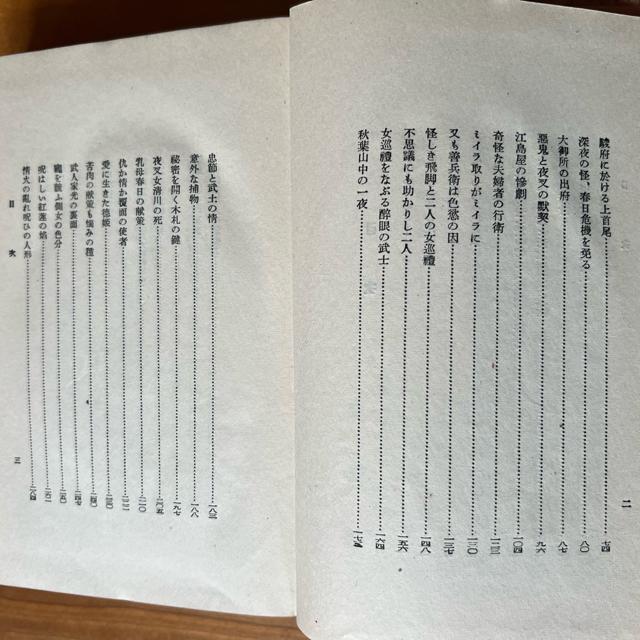 駿府に於ける上首尾……七四
深夜の怪、春日危機を免る……八〇
大御所の出府……八七
惡鬼と夜叉の默契……九六
江島屋の慘劇……一〇四
奇怪な夫婦者の行衛……一一三
ミイラ取りがミイラに……一二〇
又も善兵衛は色慾の因……一三七
怪しき飛脚と二人の女巡禮……一四八
不思議にも助かりし二人……一五六
女巡禮をなぶる醉眼の武士……一六四
秋葉山中の一夜……一七五
二
忠節と武士の情……一八三
意外な捕物……一八八
秘密を開く木札の鍵……一九七
夜叉女清川の死……二〇五
乳母春日の獻策……二一〇
仇か情か覆面の使者……二二二
愛に生きた德姬……二三〇
苦肉の獻策も惱みの種……二四〇
武人家光の裏面……二四七
寵を競ふ側女の色分……二五〇
呪はしい紅蓮の焰……二六一
情火の亂れ呪ひの人形……二八四
目次
三